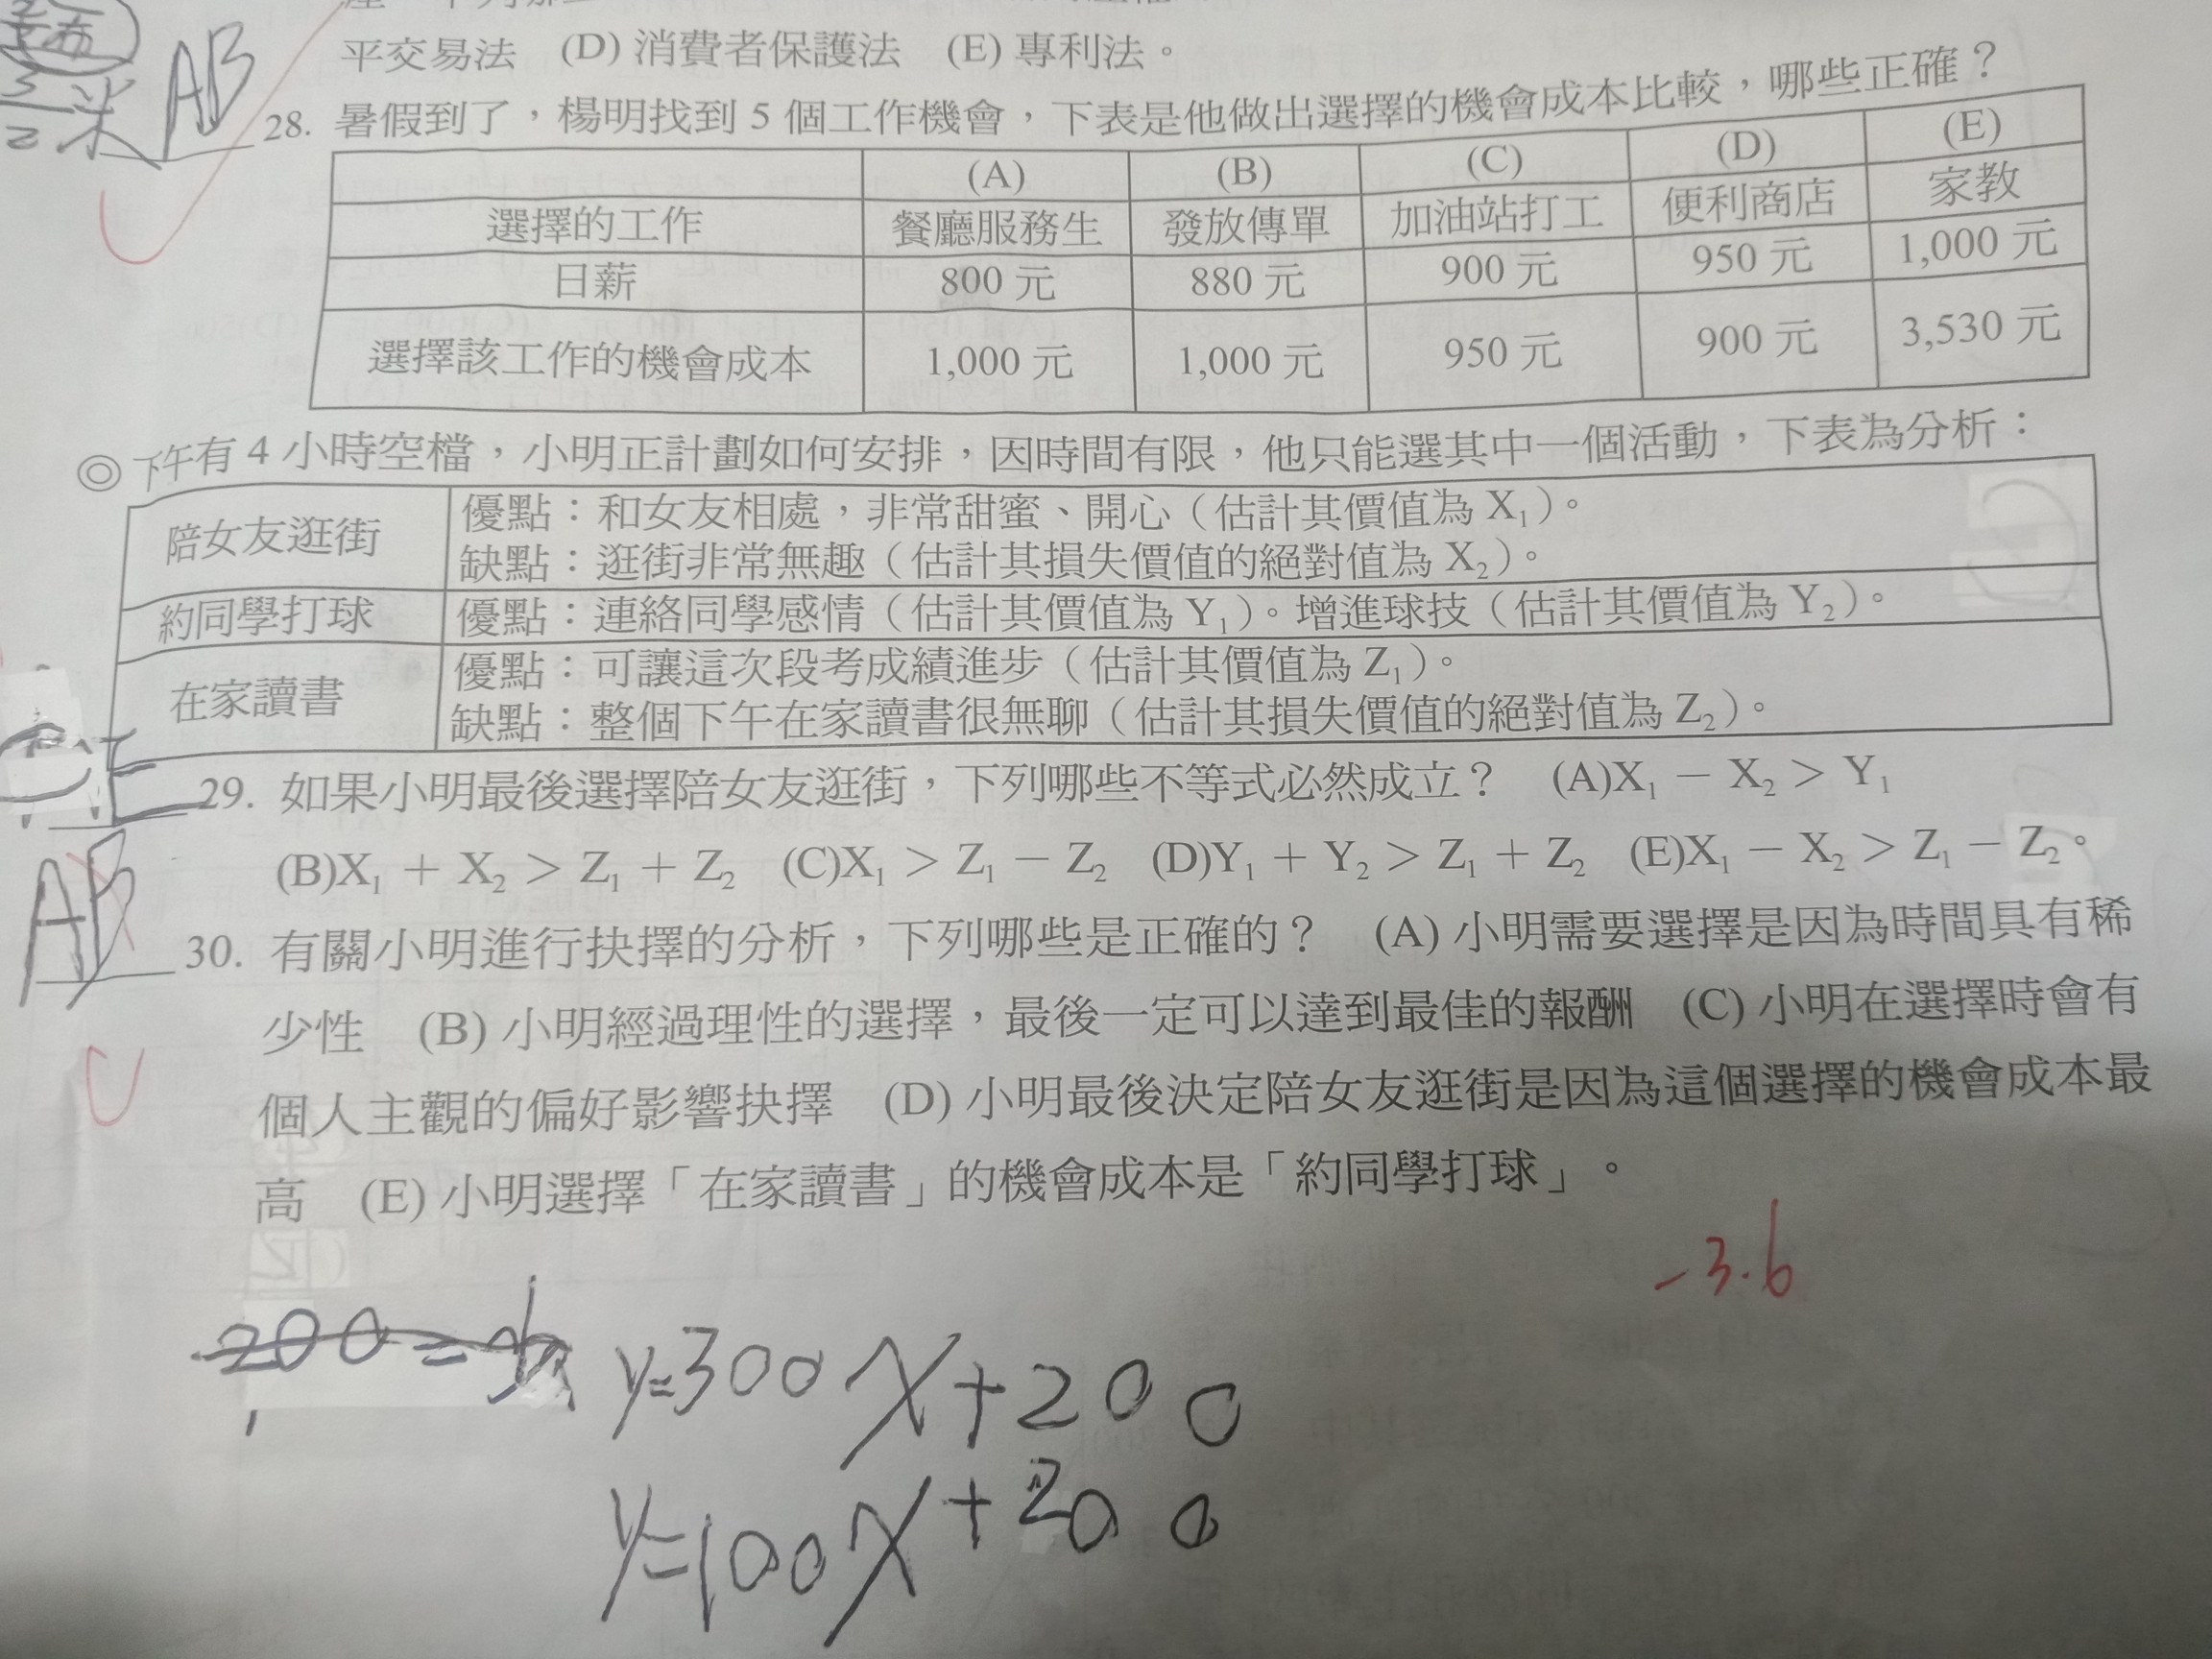 平交易法 (D) 消費者保護法 (E) 專利法。
AB
28. 暑假到了，楊明找到 5 個工作機會，下表是他做出選擇的機會成本比較，哪些正確？
(A) (B) (C) (D) (E)
選擇的工作 餐廳服務生 發放傳單 加油站打工 便利商店 家教
日薪 800 元 880 元 900 元 950 元 1,000 元
選擇該工作的機會成本 1,000 元 1,000 元 950 元 900 元 3,530 元
◎下午有 4 小時空檔，小明正計劃如何安排，因時間有限，他只能選其中一個活動，下表為分析：
陪女友逛街
優點：和女友相處，非常甜蜜、開心（估計其價值為 X₁）。
缺點：逛街非常無趣（估計其損失價值的絕對值為 X₂）。
約同學打球
優點：連絡同學感情（估計其價值為 Y₁）。增進球技（估計其價值為 Y₂）。
在家讀書
優點：可讓這次段考成績進步（估計其價值為 Z₁）。
缺點：整個下午在家讀書很無聊（估計其損失價值的絕對值為 Z₂）。
29. 如果小明最後選擇陪女友逛街，下列哪些不等式必然成立？ (A)X₁ － X₂ > Y₁
(B)X₁ ＋ X₂ > Z₁ ＋ Z₂ (C)X₁ > Z₁ － Z₂ (D)Y₁ ＋ Y₂ > Z₁ ＋ Z₂ (E)X₁ － X₂ > Z₁ － Z₂。
AB
30. 有關小明進行抉擇的分析，下列哪些是正確的？ (A) 小明需要選擇是因為時間具有稀
少性 (B) 小明經過理性的選擇，最後一定可以達到最佳的報酬 (C) 小明在選擇時會有
C
個人主觀的偏好影響抉擇 (D) 小明最後決定陪女友逛街是因為這個選擇的機會成本最
高 (E) 小明選擇「在家讀書」的機會成本是「約同學打球」。
-3.6
y=300x+200
y=100x+200